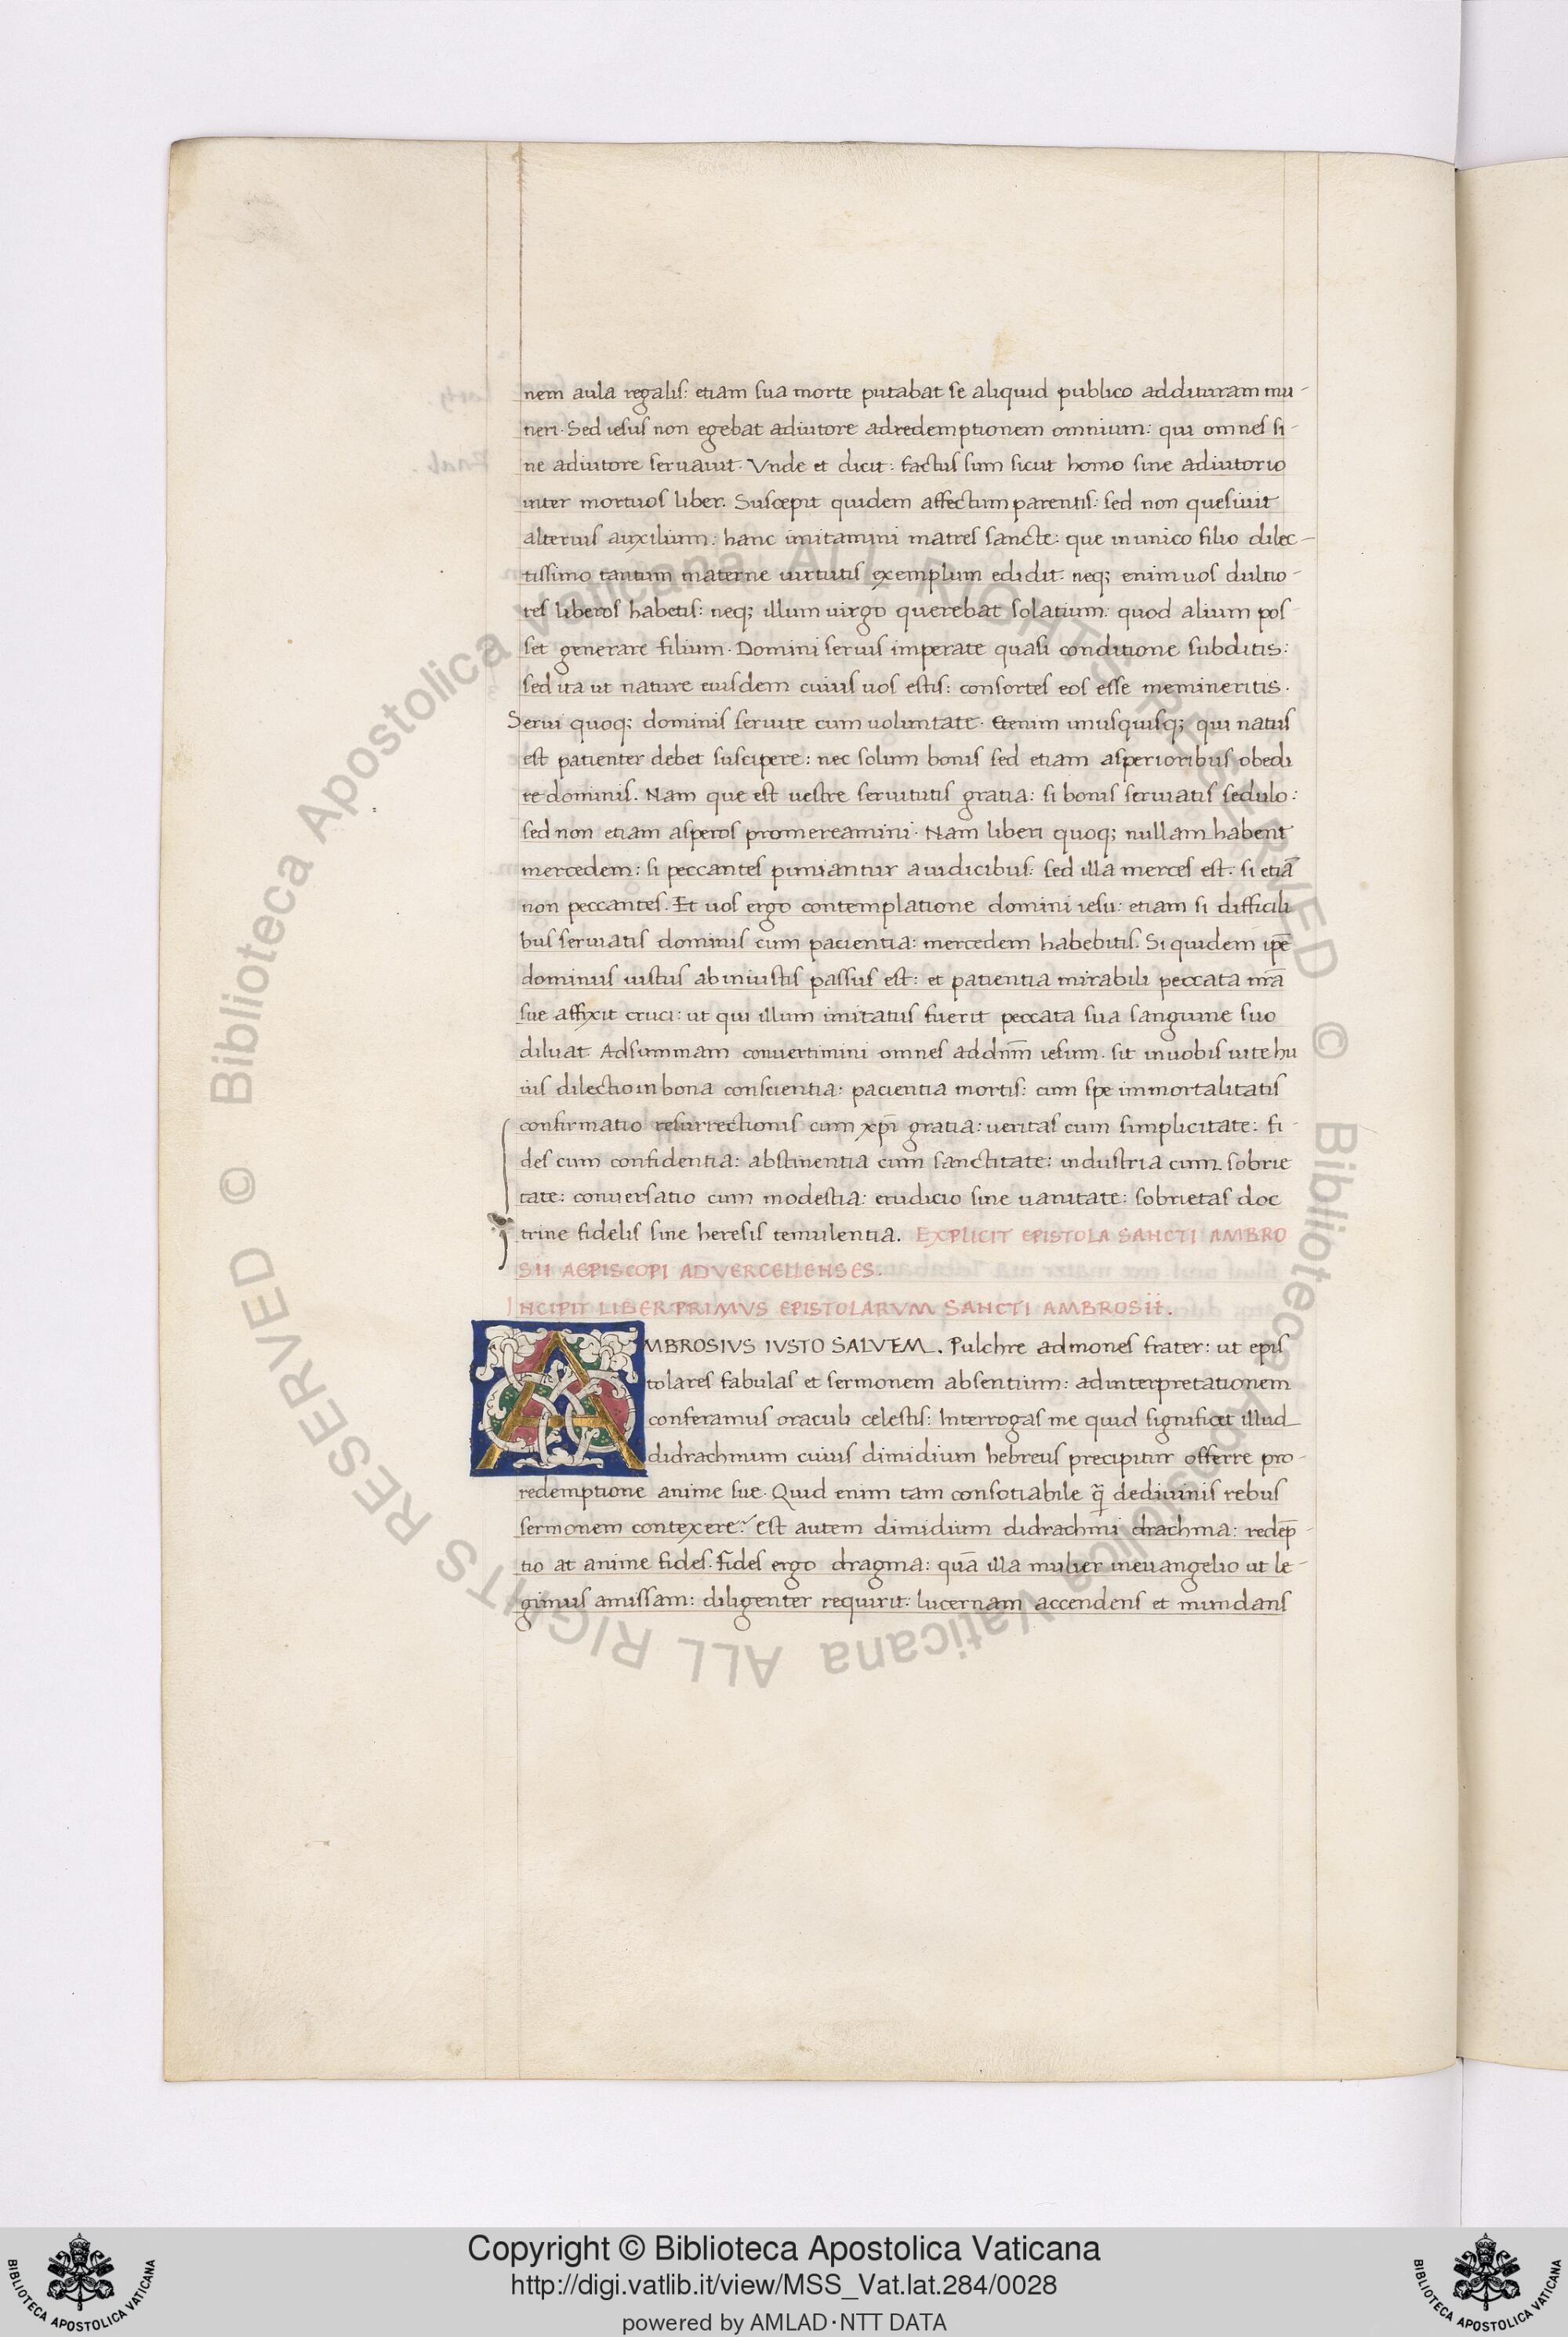 nem aula regalis: etiam sua morte putabat se aliquid publico addituram mu-
neri. Sed iesus non egebat adiutore adredemptionem omnium: qui omnes si-
ne adiutore seruauit. Vnde et dicit: factus sum sicut homo sine adiutorio
inter mortuos liber. Suscepit quidem affectum parentis: sed non quesiuit
alterius auxilium: hanc imitamini matres sancte: que inunico filio dilec-
tissimo tantum materne uirtutis exemplum edidit. neq; enim uos dultio-
tes liberos habetis: neq; illum uirgo querebat solatium: quod alium pos-
set generare filium. Domini seruis imperate quasi conditione subditis:
sed ita ut nature eiusdem cuius uos estis: consortes eos esse memineritis.
Serui quoq; dominis seruite cum uoluntate. Etenim unusquisq; qui natus
est patienter debet suscipere: nec solum bonis sed etiam asperioribus obedi
te dominis. Nam que est uestre seruitutis gratia: si bonis seruiatis sedulo:
sed non etiam asperos promereamini. Nam liberi quoq; nullam habent
mercedem: si peccantes puniantur a iudicibus: sed illa merces est. si etiā
non peccantes. Et uos ergo contemplatione domini iesu: etiam si difficili
bus seruiatis dominis cum pacientia: mercedem habebitis. Si quidem ip̄e
dominus iustus ab iniustis passus est: et patientia mirabili peccata nr̄a
sue affixit cruci: ut qui illum imitatus fuerit peccata sua sanguine suo
diluat. Adsummam conuertimini omnes addn̄m iesum. sit inuobis uite hu
ius dilectio inbona conscientia: pacientia mortis: cum spe immortalitatis
confirmatio resurrectionis cum xp̄i gratia: ueritas cum simplicitate: fi-
des cum confidentia: abstinentia cum sanctitate: industria cum sobrie
tate: conuersatio cum modestia: erudicio sine uanitate: sobrietas doc
trine fidelis sine heresis temulentia. EXPLICIT EPISTOLA SANCTI AMBRO
SII AEPISCOPI ADVERCELLENSES.
INCIPIT LIBER PRIMVS EPISTOLARVM SANCTI AMBROSii.
AMBROSIVS IVSTO SALVTEM. Pulchre admones frater: ut epis
tolares fabulas et sermonem absentium: adinterpretationem
conferamus oraculi celestis: Interrogas me quid significet illud
didrachmum cuius dimidium hebreus precipitur offerre pro-
redemptione anime sue. Quid enim tam consotiabile q̄ dediuinis rebus
sermonem contexere? Est autem dimidium didrachmi drachma: redēp-
tio at anime fides. fides ergo dragma: quā illa mulier ineuangelio ut le-
gimus amissam: diligenter requirit: lucernam accendens et mundans
Copyright © Biblioteca Apostolica Vaticana
http://digi.vatlib.it/view/MSS_Vat.lat.284/0028
powered by AMLAD·NTT DATA
BIBLIOTECA APOSTOLICA VATICANA
BIBLIOTECA APOSTOLICA VATICANA
© Biblioteca Apostolica Vaticana ALL RIGHTS RESERVED © Biblioteca Apostolica Vaticana ALL RIGHTS RESERVED